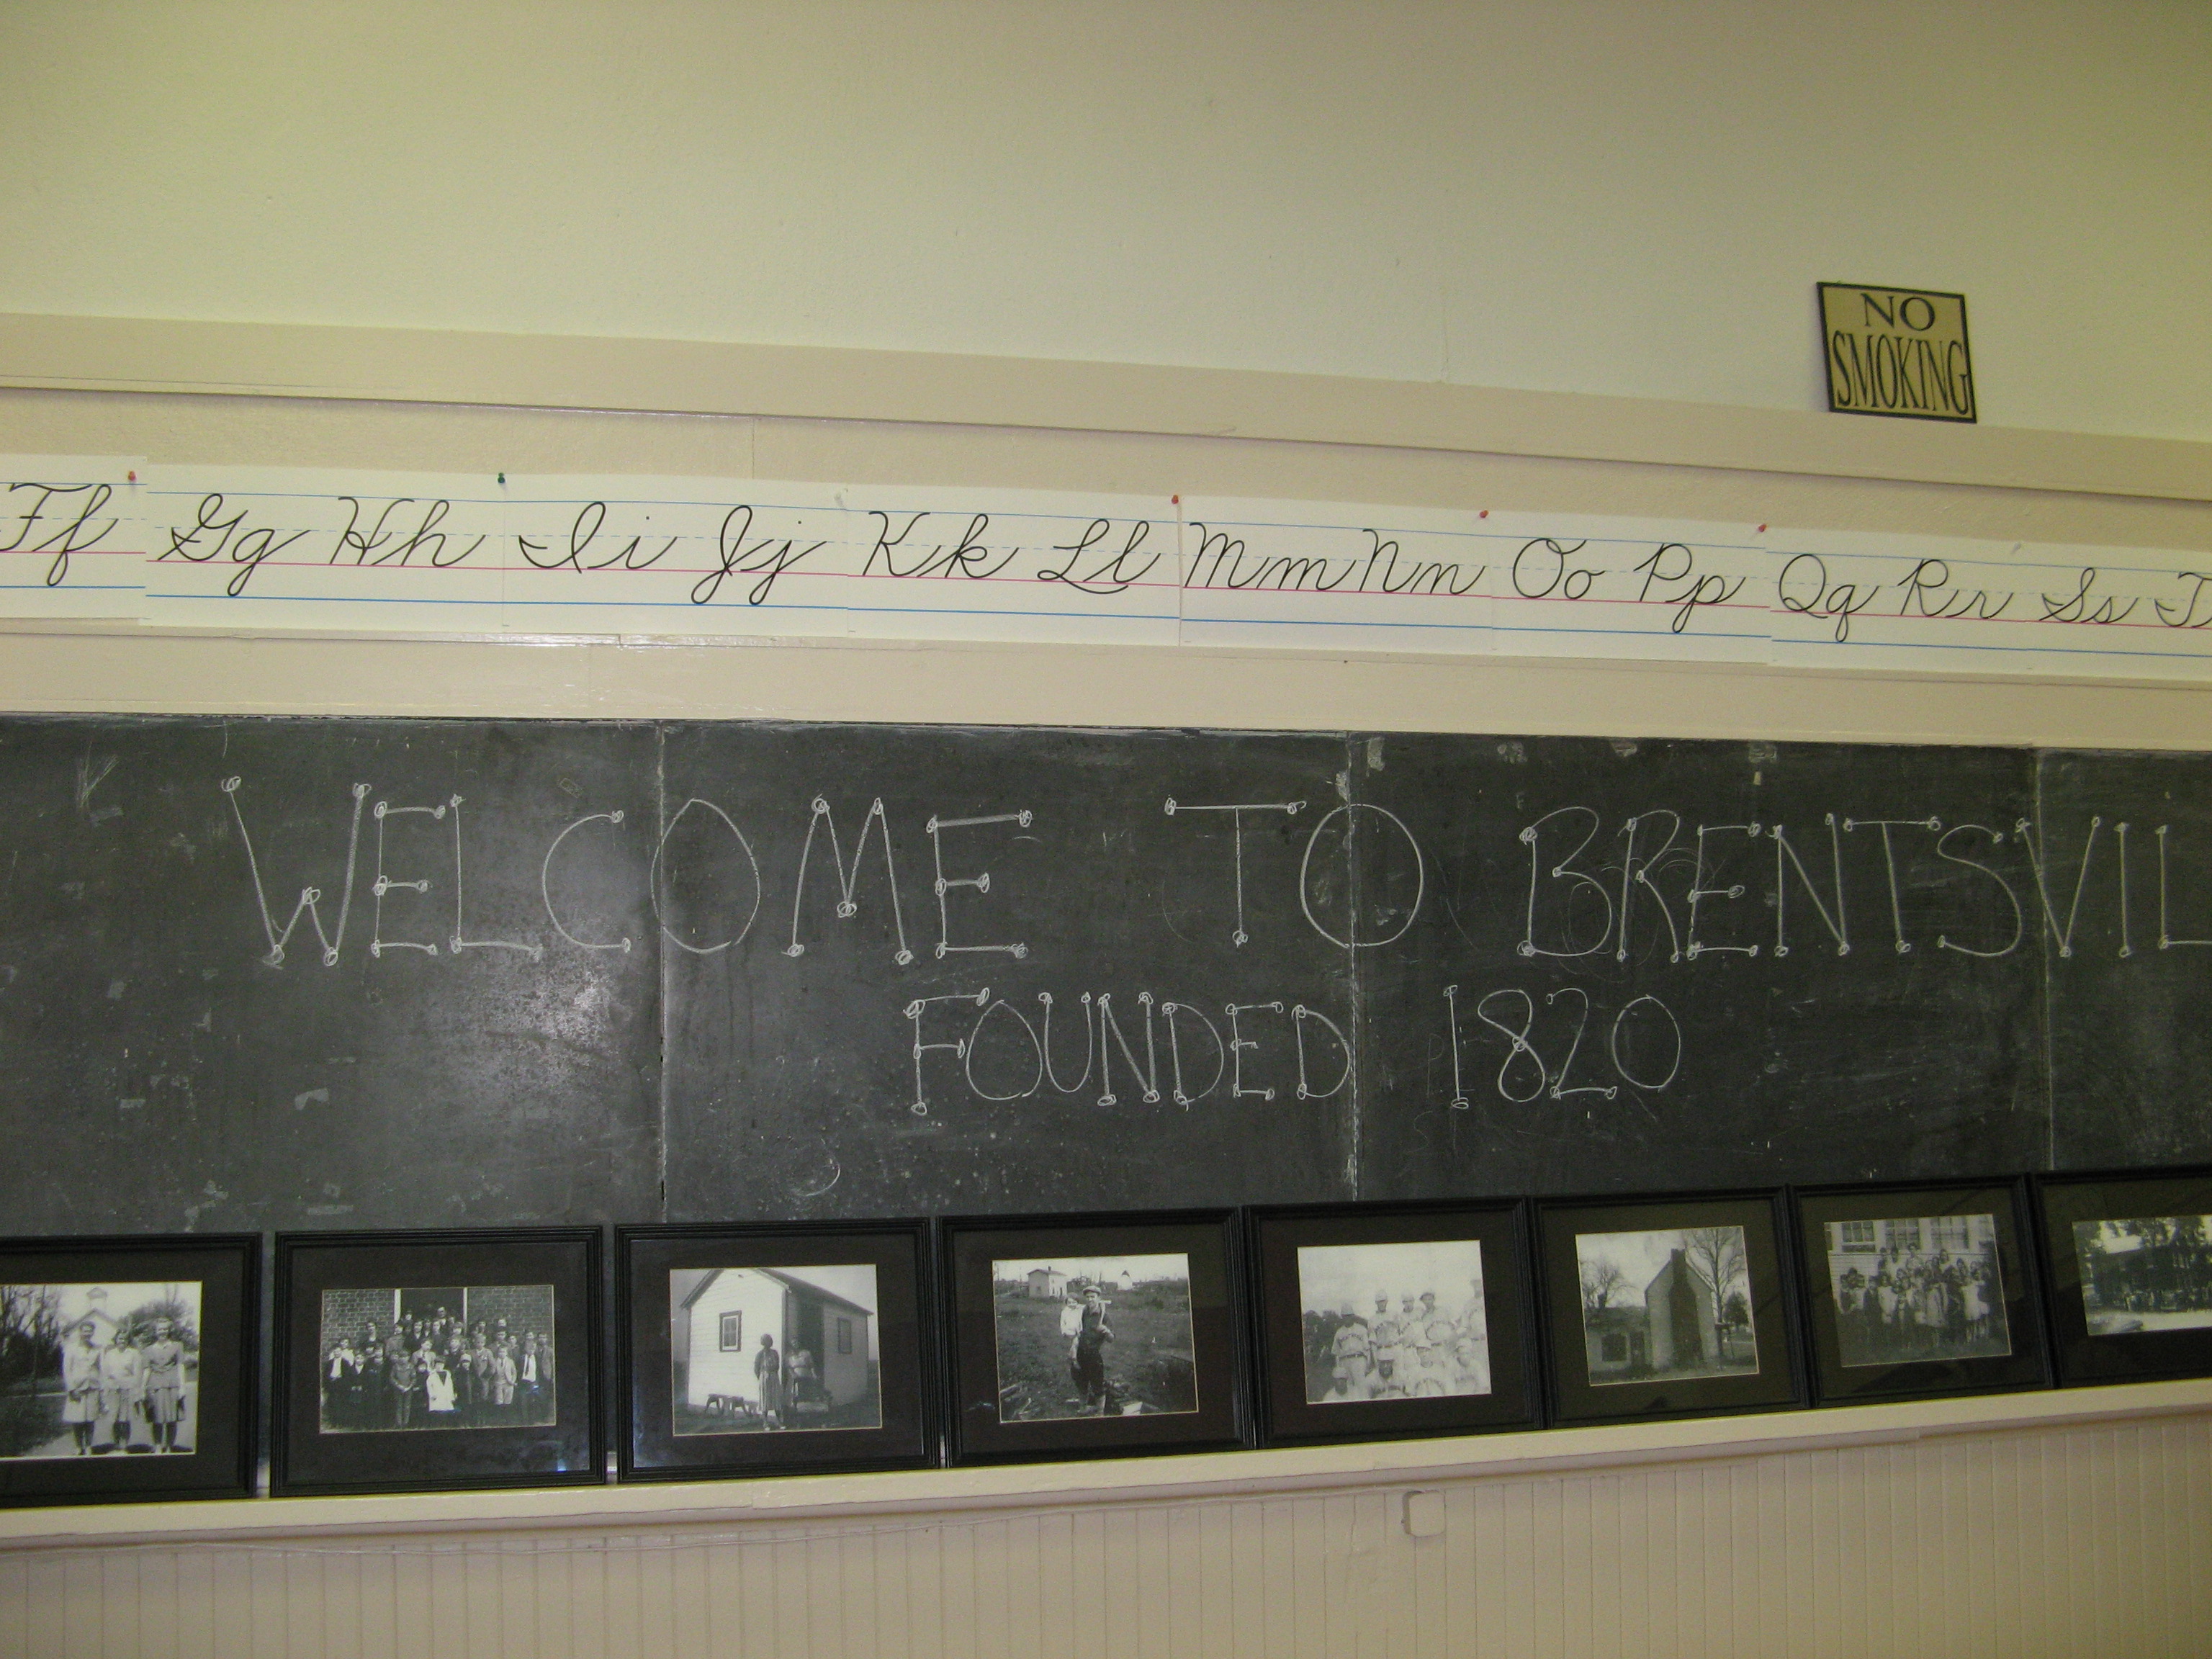 NO
SMOKING
Ff Gg Hh Ii Jj Kk Ll Mm Nn Oo Pp Qq Rr Ss T
WELCOME TO BRENTSVIL
FOUNDED 1820